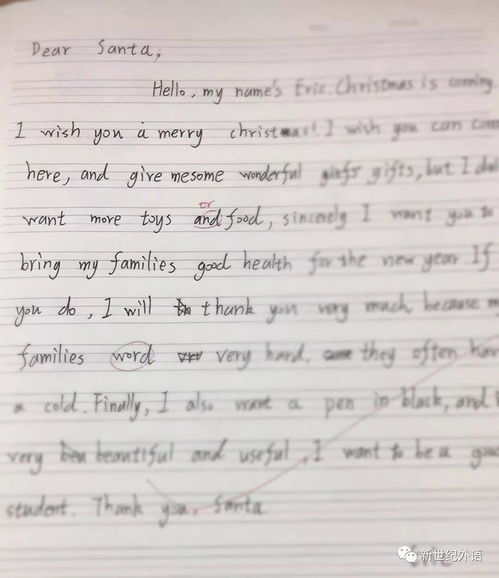 Dear Santa,
Hello, my name's Eric. Christmas is coming.
I wish you a merry christmas! I wish you can com
here, and give mesome wonderful gifts, but I
or
want more toys and food, sincerely I want you to
bring my families good health for the new year. If
you do, I will thank you very much, because
families word very hard. they often hav
a cold. Finally, I also want a pen in black, and
very beautiful and useful, I want to be a good
student. Thank you, Santa
新世纪外语